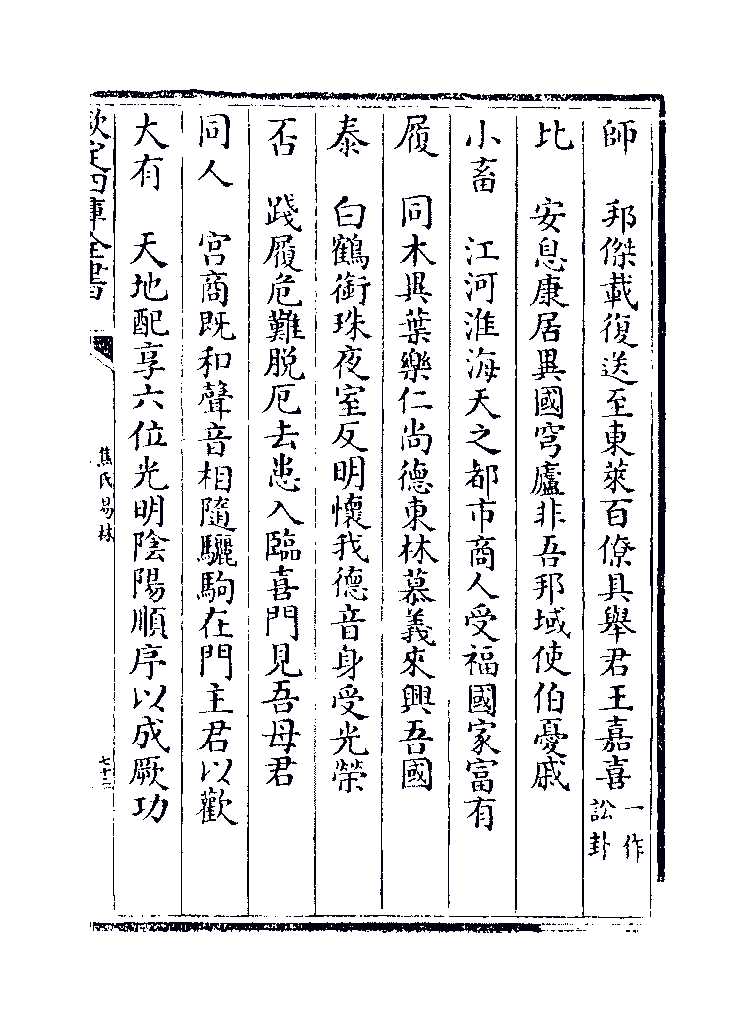 師　邦傑載復送至東萊百僚具舉君王嘉喜一作訟卦
比　安息康居異國穹廬非吾邦域使伯憂戚
小畜　江河淮海天之都市商人受福國家富有
履　同木異葉樂仁尚德東林慕義來興吾國
泰　白鶴銜珠夜室反明懷我德音身受光榮
否　踐履危難脱厄去患入臨喜門見吾母君
同人　宫商既和聲音相隨驪駒在門主君以歡
大有　天地配享六位光明陰陽順序以成厥功
欽定四庫全書
焦氏易林
七十二